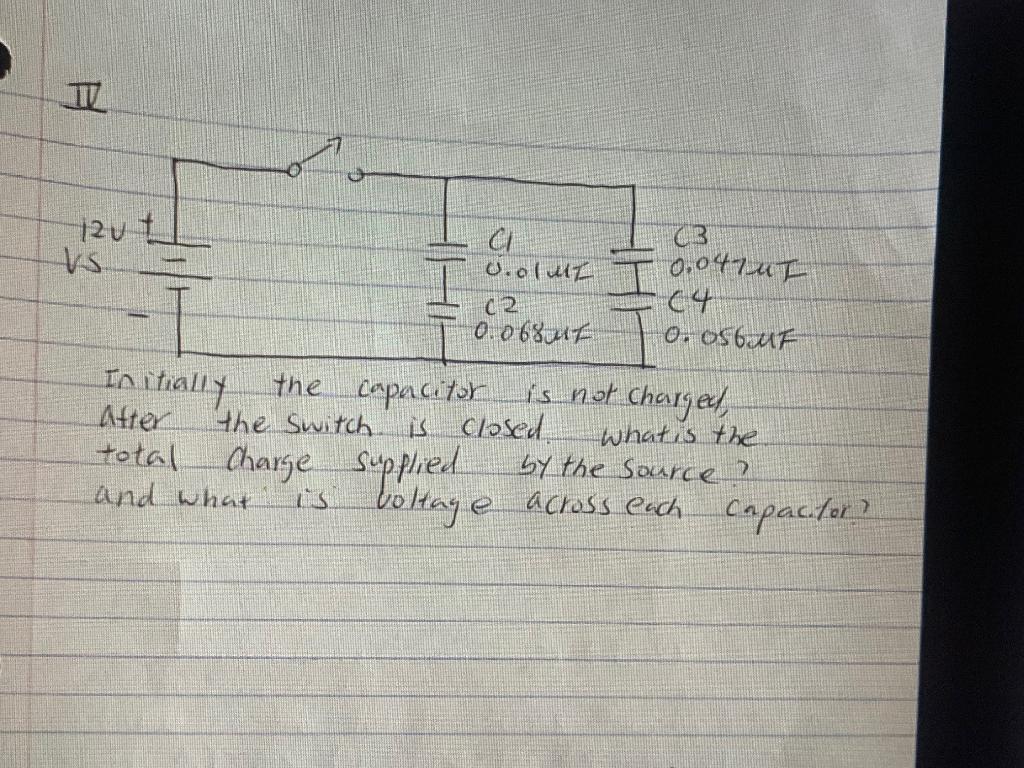 IV
12V +
VS
-
C1
0.01μF
C2
0.068μF
C3
0.047μF
C4
0.056μF
Initially the capacitor is not charged,
After the switch is closed. what is the
total Charge supplied by the source?
and what is voltage across each capacitor?